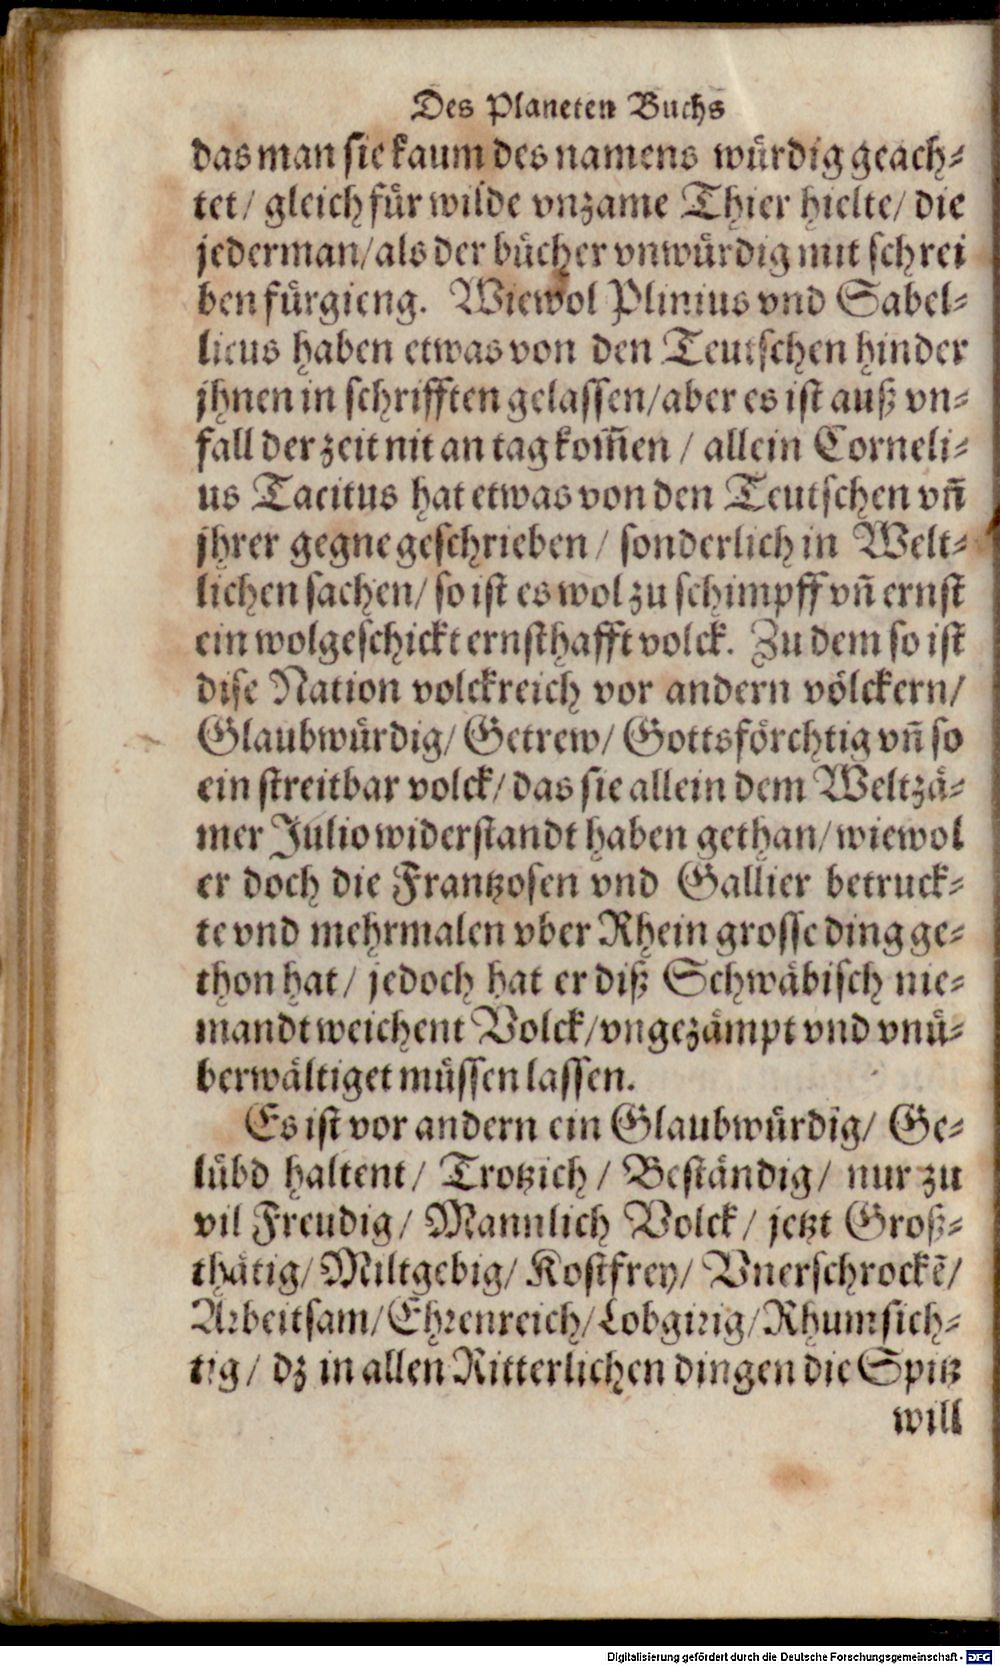 Des Planeten Buchs
das man sie kaum des namens würdig geach⸗
tet/ gleich für wilde vnzame Thier hielte/ die
jederman/ als der bücher vnwürdig mit schrei
ben fürgieng. Wiewol Plinius vnd Sabel⸗
licus haben etwas von den Teutschen hinder
jhnen in schrifften gelassen/ aber es ist auß vn⸗
fall der zeit nit an tag kom̃en / allein Corneli⸗
us Tacitus hat etwas von den Teutschen vñ
jhrer gegne geschrieben / sonderlich in Welt⸗
lichen sachen/ so ist es wol zu schimpff vñ ernst
ein wolgeschickt ernsthafft volck. Zu dem so ist
dise Nation volckreich vor andern völckern/
Glaubwürdig/ Getrew/ Gottsförchtig vñ so
ein streitbar volck/ das sie allein dem Weltzä⸗
mer Julio widerstandt haben gethan/ wiewol
er doch die Frantzosen vnd Gallier betruck⸗
te vnd mehrmalen vber Rhein grosse ding ge⸗
thon hat/ jedoch hat er diß Schwäbisch nie⸗
mandt weichent Volck/ vngezämpt vnd vnü⸗
berwältiget müssen lassen.
Es ist vor andern ein Glaubwürdig/ Ge⸗
lübd haltent/ Trotzich / Beständig/ nur zu
vil Freudig/ Mannlich Volck/ jetzt Groß⸗
thätig/ Miltgebig/ Kostfrey/ Vnerschrockē/
Arbeitsam/ Ehrenreich/ Lobgirig/ Rhumsich⸗
tig/ dz in allen Ritterlichen dingen die Spitz
will
Digitalisierung gefördert durch die Deutsche Forschungsgemeinschaft - DFG